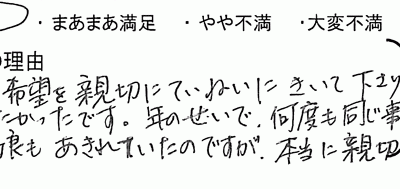 ・まあまあ満足 ・やや不満 ・大変不満
の理由
希望を親切にていねいにきいて下さり
たかったです。年のせいで、何度も同じ事
娘もあきれていたのですが、本当に親切